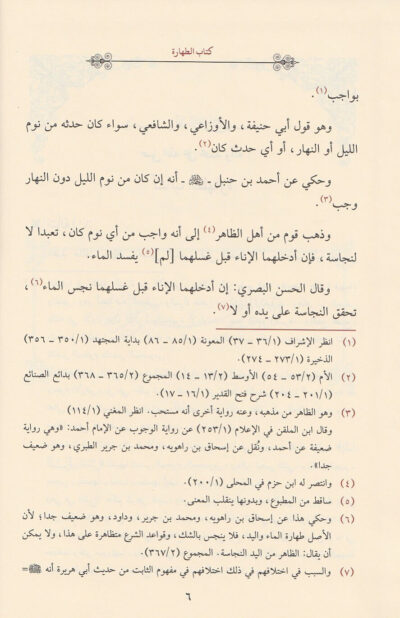 كتاب الطهارة
بواجب(١).
وهو قول أبي حنيفة، والأوزاعي، والشافعي، سواء كان حدثه من نوم
الليل أو النهار، أو أي حدث كان(٢).
وحكي عن أحمد بن حنبل ـ رضي الله عنه ـ أنه إن كان من نوم الليل دون النهار
وجب(٣).
وذهب قوم من أهل الظاهر(٤) إلى أنه واجب من أي نوم كان، تعبدا لا
لنجاسة، فإن أدخلهما الإناء قبل غسلهما [لم](٥) يفسد الماء.
وقال الحسن البصري: إن أدخلهما الإناء قبل غسلهما نجس الماء(٦)،
تحقق النجاسة على يده أو لا(٧).
(١) انظر الإشراف (٣٦/١ - ٣٧) المعونة (٨٥/١ - ٨٦) بداية المجتهد (٣٥٠/١ - ٣٥٦)
الذخيرة (٢٧٣/١ - ٢٧٤).
(٢) الأم (٥٣/٢ - ٥٤) الأوسط (١٣/٢ - ١٤) المجموع (٣٦٥/٢ - ٣٦٨) بدائع الصنائع
(٢٠١/١ - ٢٠٤) شرح فتح القدير (١٦/١ - ١٧).
(٣) وهو الظاهر من مذهبه، وعنه رواية أخرى أنه مستحب. انظر المغني (١١٤/١)
وقال ابن الملقن في الإعلام (٢٥٣/١) عن رواية الوجوب عن الإمام أحمد: «وهي رواية
ضعيفة عن أحمد، ونُقل عن إسحاق بن راهويه، ومحمد بن جرير الطبري، وهو ضعيف
جدا».
(٤) وانتصر له ابن حزم في المحلى (٢٠٠/١).
(٥) ساقط من المطبوع، وبدونها ينقلب المعنى.
(٦) وحكي هذا عن إسحاق بن راهويه، ومحمد بن جرير، وداود، وهو ضعيف جدا؛ لأن
الأصل طهارة الماء واليد، فلا ينجس بالشك، وقواعد الشرع متظاهرة على هذا، ولا يمكن
أن يقال: الظاهر من اليد النجاسة. المجموع (٣٦٧/٢).
(٧) والسبب في اختلافهم في ذلك اختلافهم في مفهوم الثابت من حديث أبي هريرة أنه ﷺ=
٦